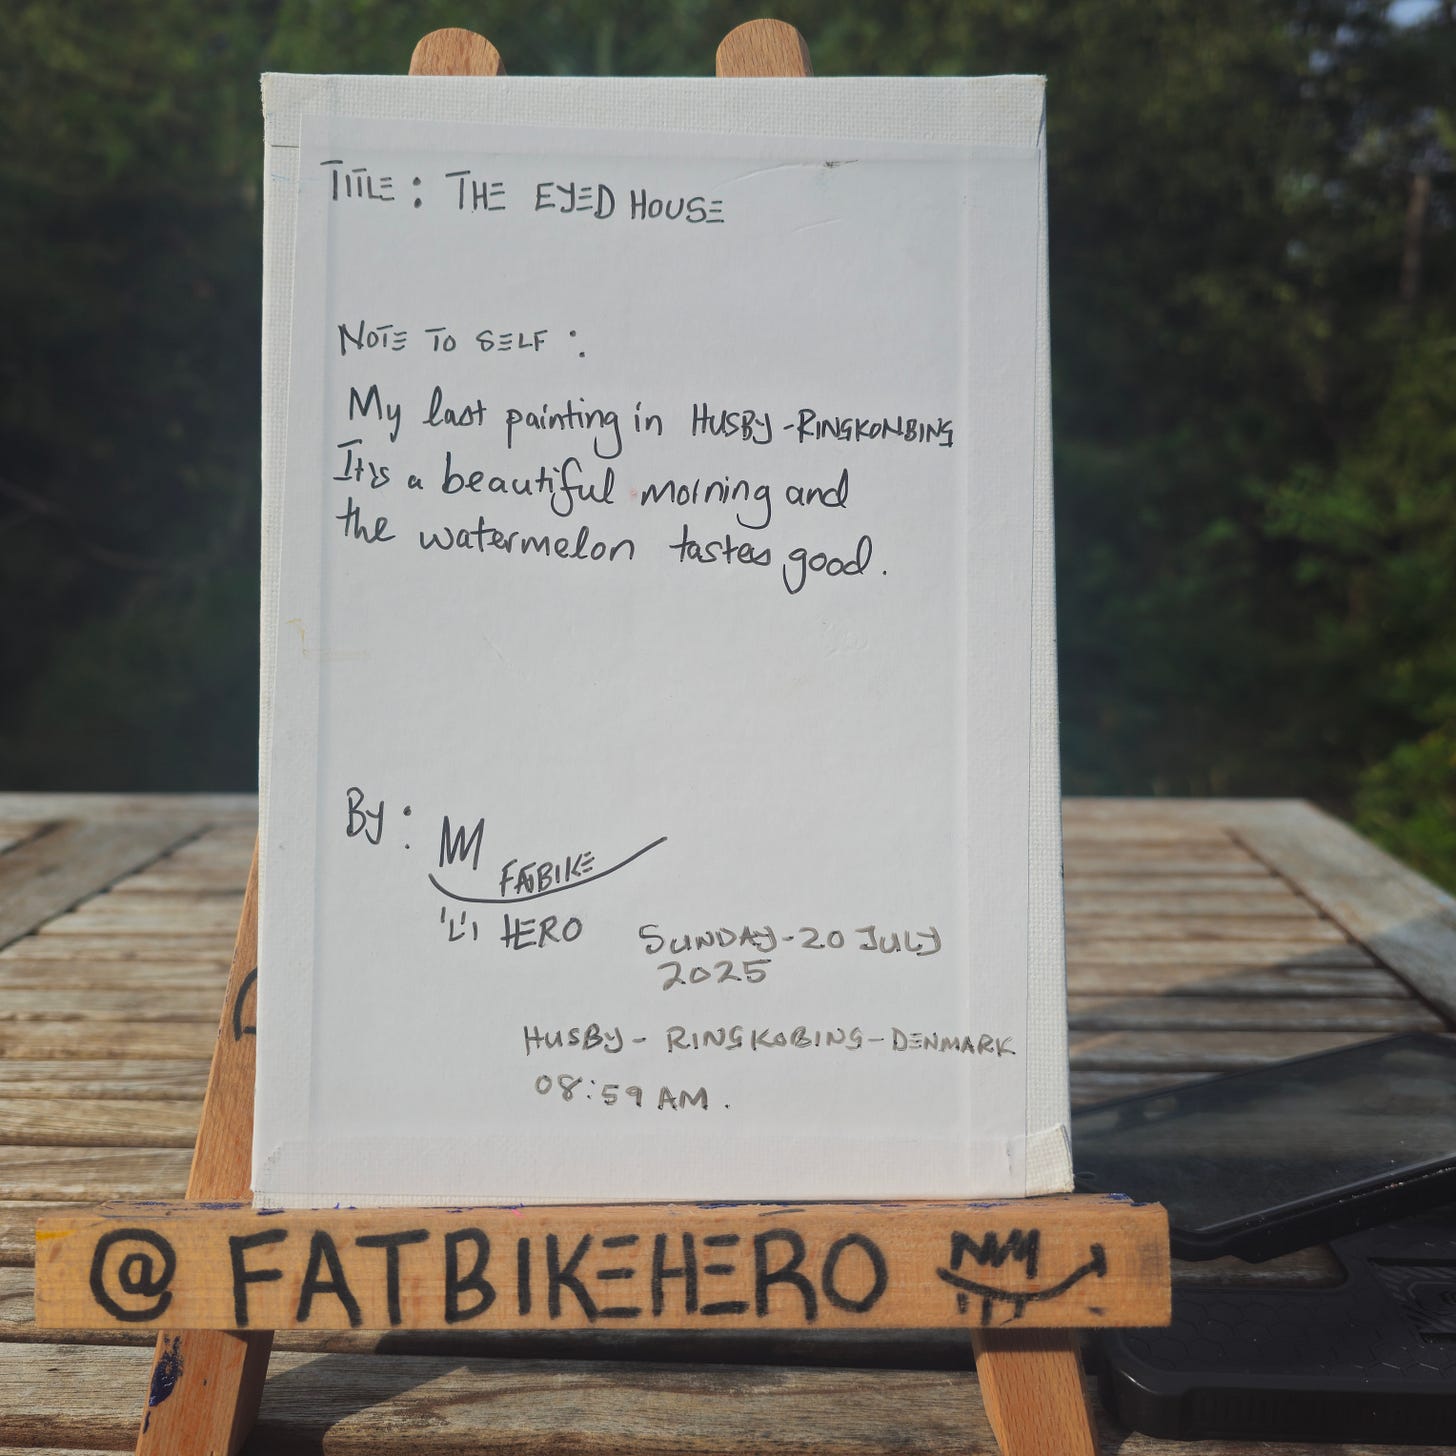 TITLE : THE EYED HOUSE
NOTE TO SELF :
My last painting in HUSBY-RINGKONBING
It's a beautiful morning and
the watermelon tastes good.
By :
FATBIKE
HERO
SUNDAY-20 JULY
2025
HUSBY- RINGKOBING-DENMARK
08:59 AM.
@FATBIKEHERO